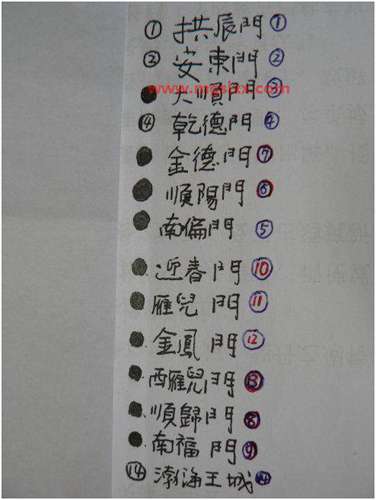 ① 拱辰門 ①
② 安東門 ②
大順門 ③
④ 乾德門 ④
金德門 ⑦
順陽門 ⑥
南倫門 ⑤
迎春門 ⑩
雁兒門 ⑪
金鳳門 ⑫
西雁兒門 ⑬
順歸門 ⑧
南福門 ⑨
⑭ 渤海王城 ⑭